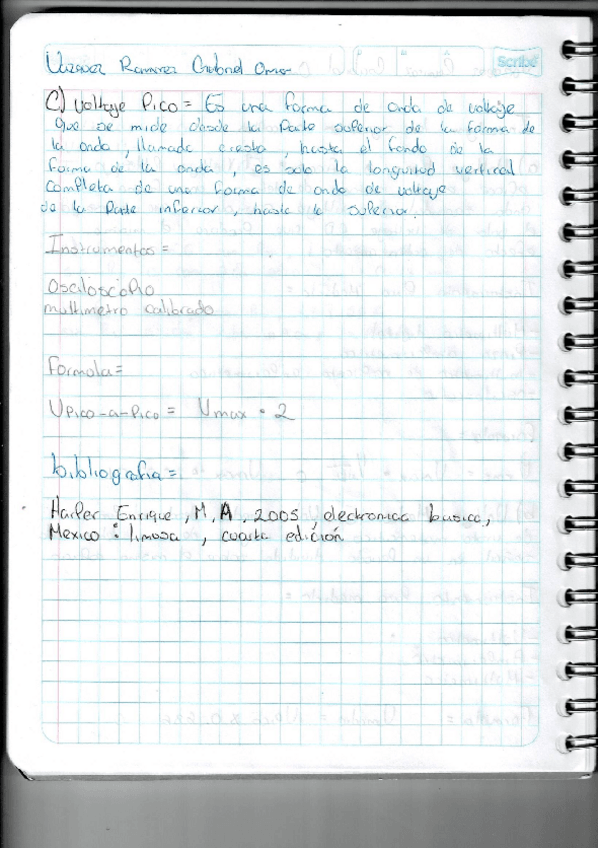 Vazquez Ramirez Gabriel Omar
Scribe
C) Voltaje Pico = Es una forma de onda de voltaje
que se mide desde la parte superior de la forma de
la onda, llamada cresta, hasta el fondo de la
forma de la onda, es solo la longuitud vertical
completa de una forma de onda de voltaje
de la parte inferior, hasta la superior.
Instrumentos =
Osciloscopio
multimetro calibrado
formola =
Vpico-a-pico = Vmax • 2
bibliografia =
Harper Enrique, M, A, 2005, electronica basica,
Mexico : limosa, cuarta edición